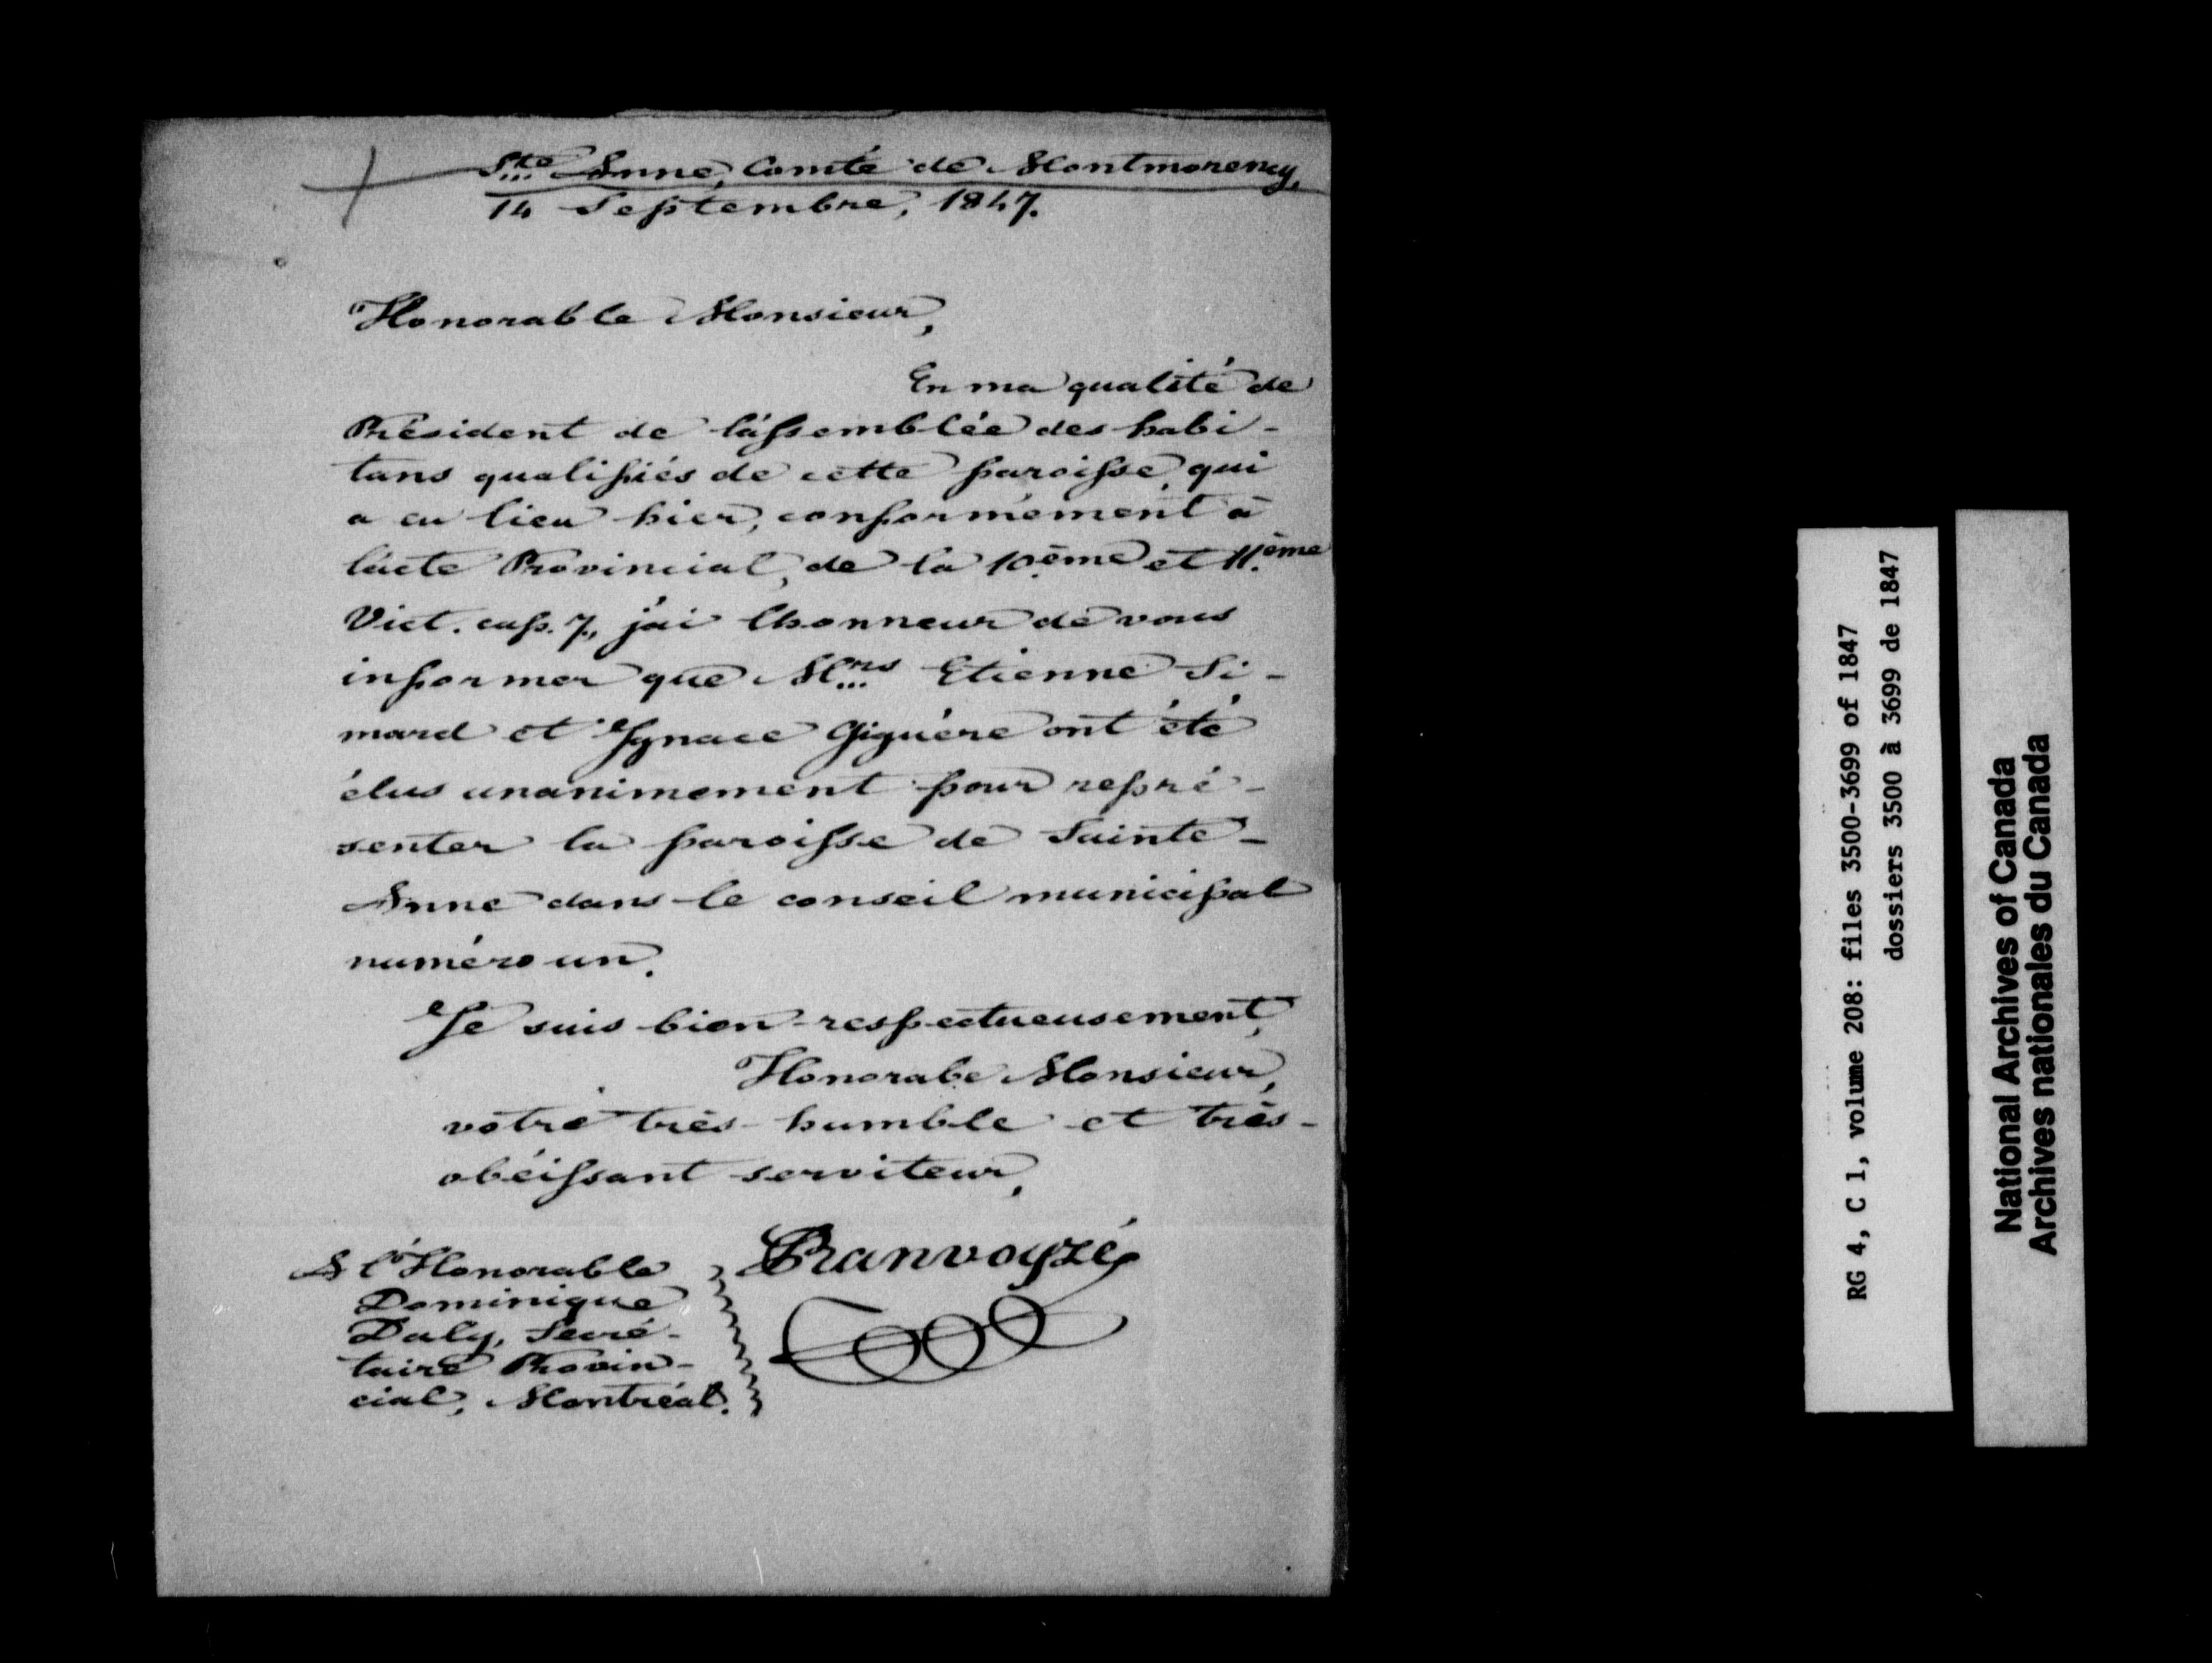 Ste Anne, Comté de Montmorency,
14 Septembre, 1847.
Honorable Monsieur,
En ma qualité de
Président de l'assemblée des habi-
tans qualifiés de cette paroisse, qui
a eu lieu hier, conformément à
l'acte Provincial, de la 10ème et 11ème
Vict. cap. 7., j'ai l'honneur de vous
informer que Mrs Etienne Si-
mard et Ignace Giguère ont été
élus unanimement pour repré-
senter la paroisse de Sainte-
Anne dans le conseil municipal
numéro un.
Je suis bien respectueusement,
Honorabe Monsieur,
votre très-humble et très-
obéissant serviteur,
Ranvoyzé
A l'Honorable
Dominique
Daly, Secré-
taire Provin-
cial, Montréal.
RG 4, C 1, volume 208: files 3500-3699 of 1847
dossiers 3500 à 3699 de 1847
National Archives of Canada
Archives nationales du Canada